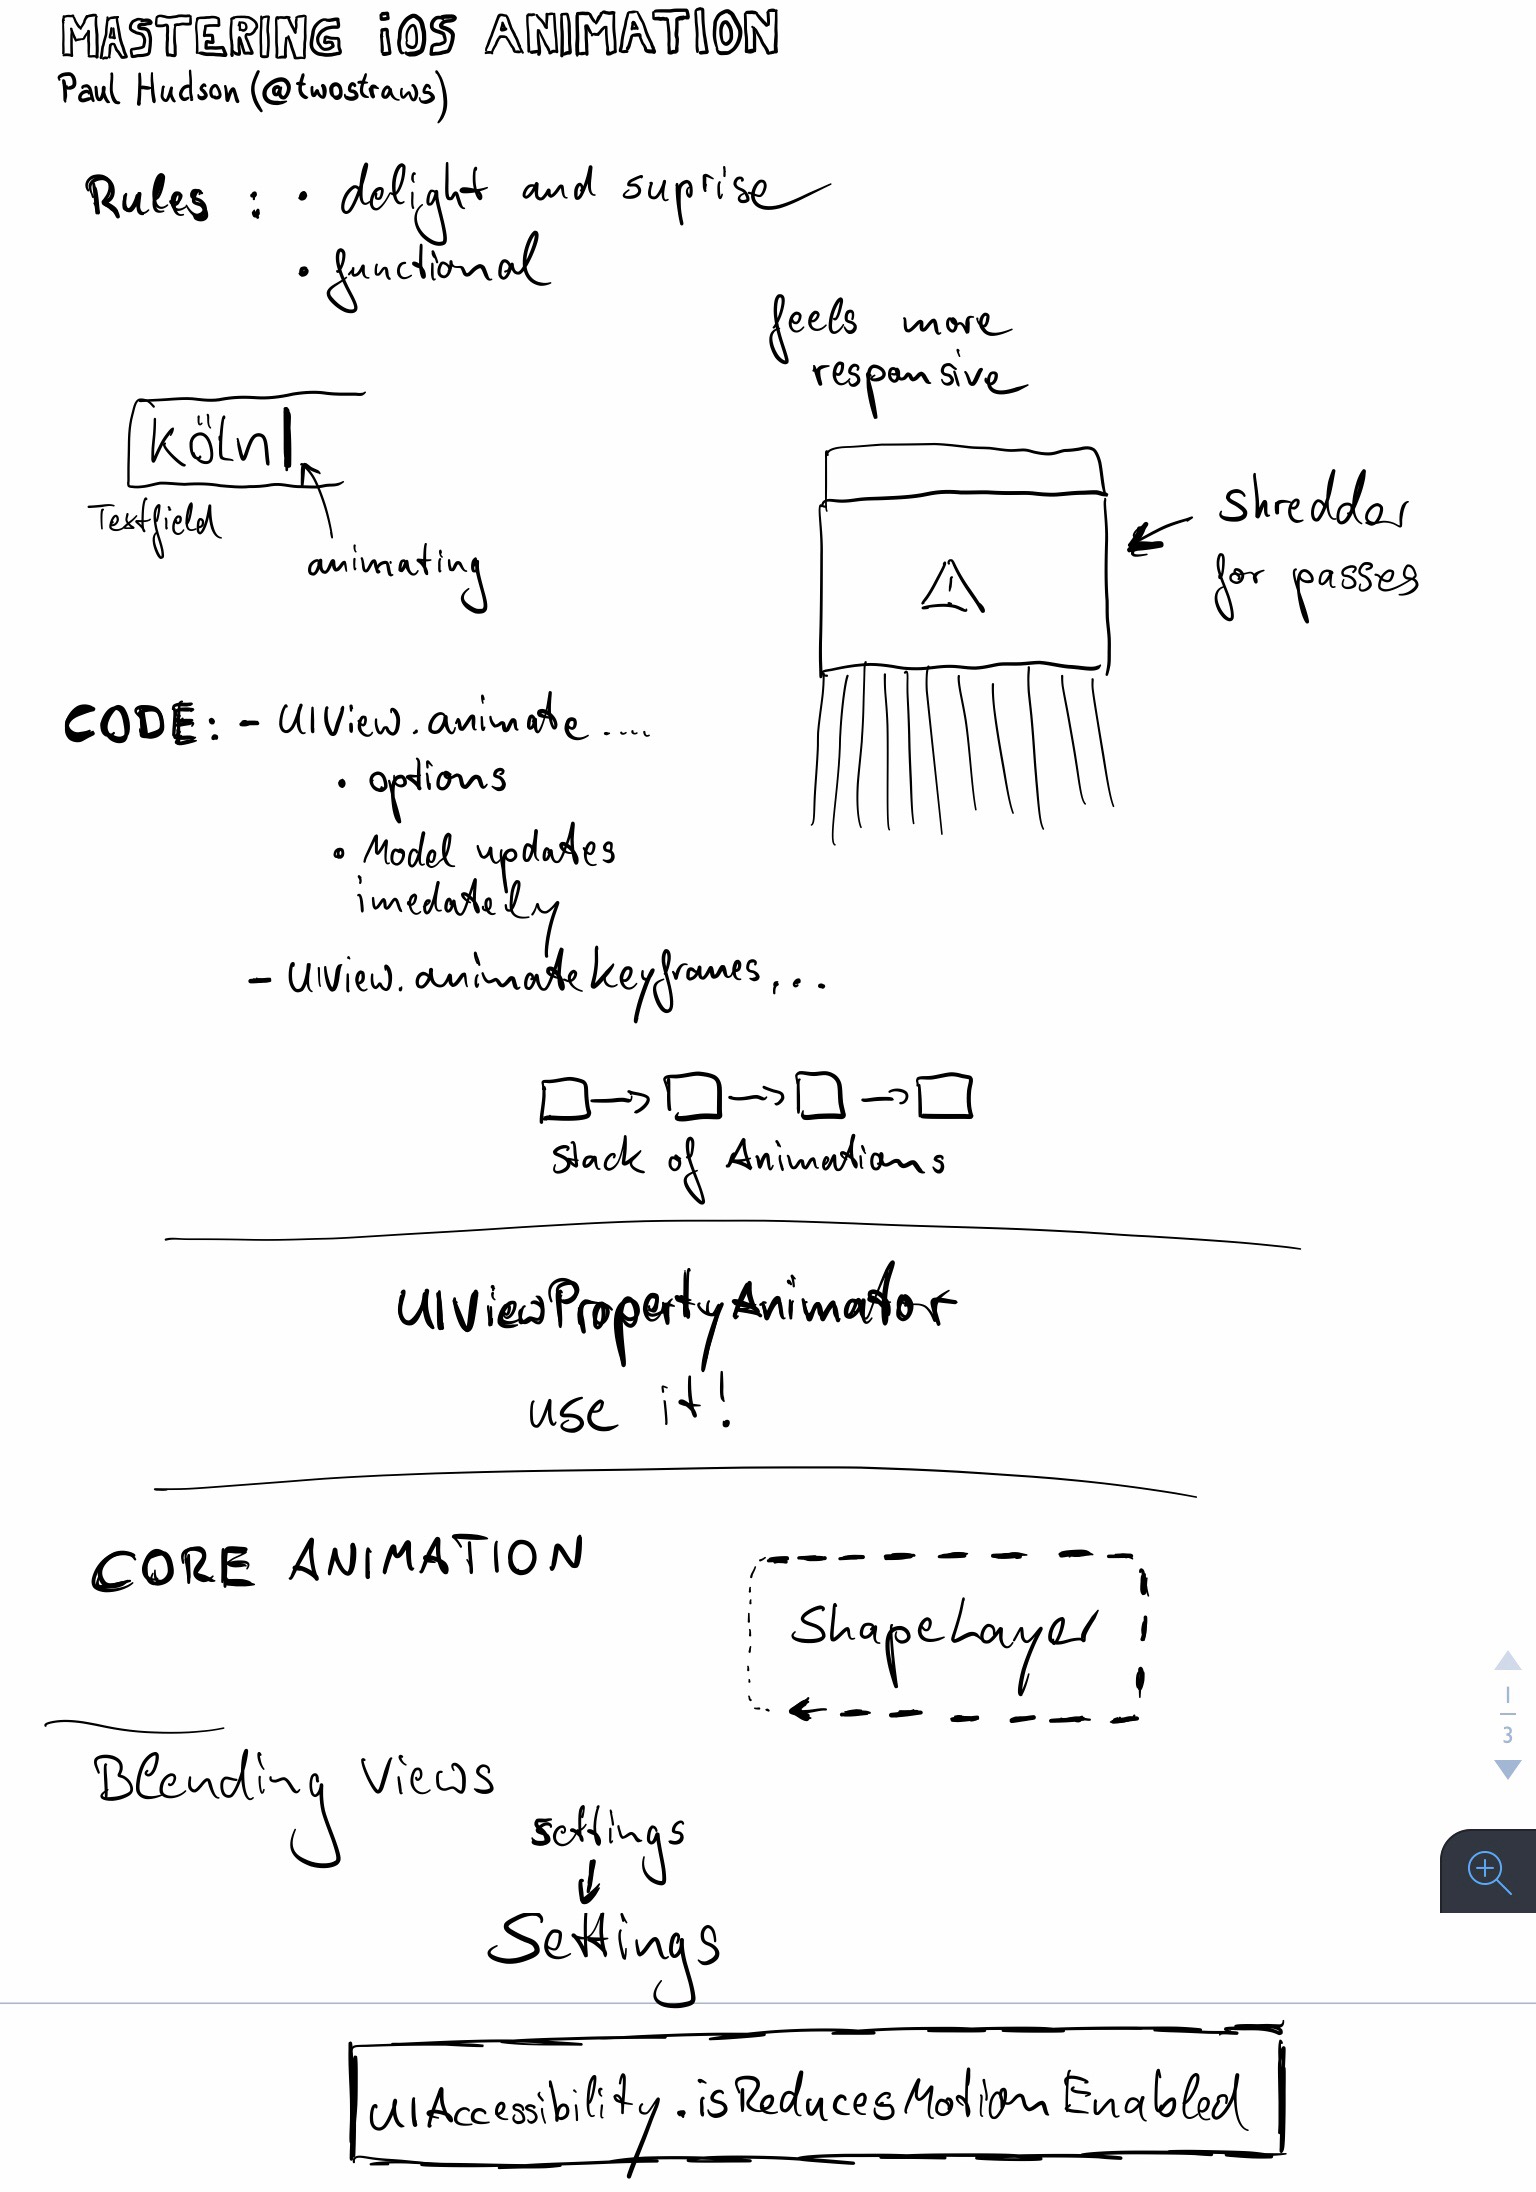 MASTERING iOS ANIMATION
Paul Hudson (@twostraws)
Rules : • delight and suprise
• functional
feels more
responsive
Köln
Textfield
animating
shredder
for passes
CODE: - UIView.animate ....
• options
• Model updates
imedately
- UIView.animatekeyframes...
stack of Animations
UIViewPropertyAnimator
use it!
CORE ANIMATION
ShapeLayer
Blending Views
settings
Settings
1
3
UIAccessibility.isReducesMotionEnabled